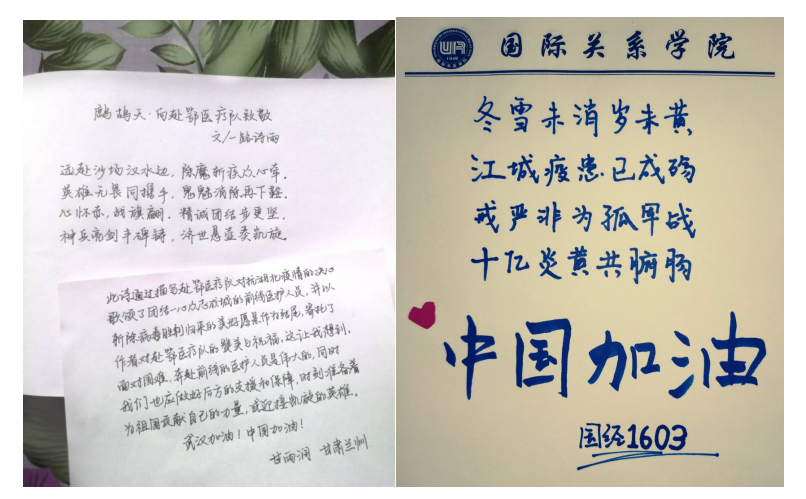 鹧鸪天·向赴鄂医疗队致敬
文/一路诗雨
远赴沙场汉水边，除魔斩疫众心牵。
英雄无畏同携手，鬼魅消除再下鞍。
心怀赤，战旗翩，精诚团结步更坚。
神兵亮剑丰碑铸，济世悬壶奏凯旋。
此诗通过描写赴鄂医疗队对抗湖北疫情的决心
歌颂了团结一心众志成城的前线医护人员，并以
斩除病毒胜利归来的美好愿景作为结尾，寄托了
作者对赴鄂医疗队的赞美与祝福。这让我想到，
面对困难，奔赴前线的医护人员是伟大的，同时
我们也应做好后方的支援和保障，时刻准备着
为祖国贡献自己的力量，或迎接凯旋的英雄。
武汉加油！中国加油！
甘雨润 甘肃兰州
UIR
国际关系学院
冬雪未消岁未黄
江城疫患已成殇
戒严非为孤军战
十亿炎黄共腑肠
中国加油
国经1603